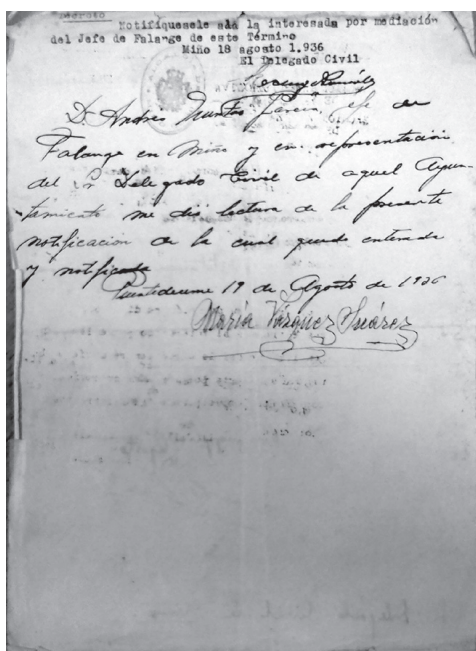 Decreto
Notifíquesele a la interesada por mediación
del Jefe de Falange de este Término
Miño 18 agosto 1.936
El Delegado Civil
D. Andres García, Jefe de
Falange en Miño y en representación
del Sr Delegado Civil de aquel Ayun-
tamiento me dió lectura de la presente
notificación de la cual quedo enterada
y notificada
Puentedeume 19 de Agosto de 1936
María Vázquez Suárez